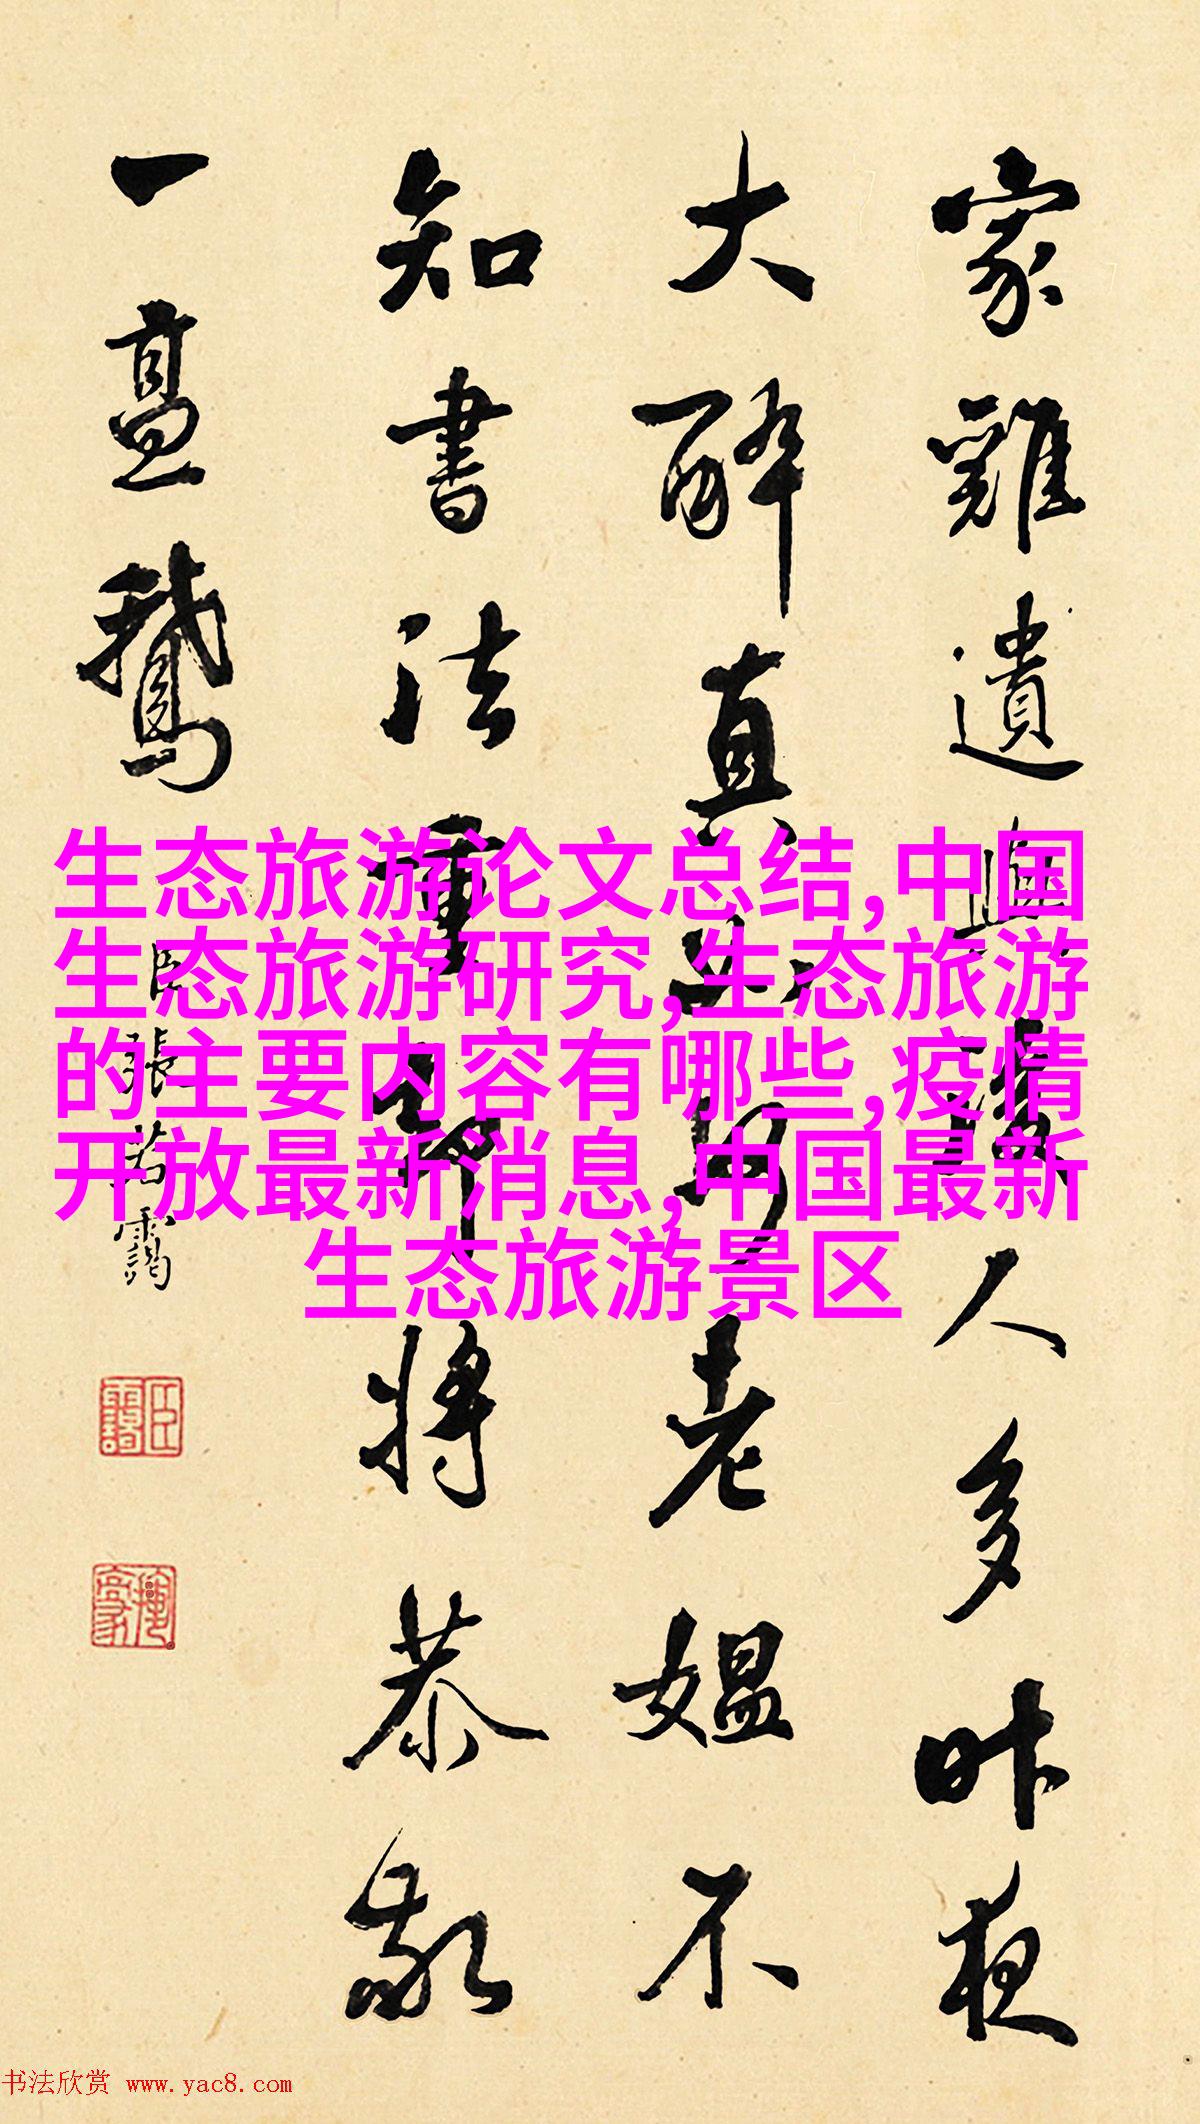 家雞遺
人多昨夜
大醉真
老媼不
知書法重
将恭敬
一㐭鵝
臣張若靄
生态旅游论文总结,中国
生态旅游研究,生态旅游
的主要内容有哪些,疫情
开放最新消息,中国最新
生态旅游景区
书法欣赏 www.yac8.com